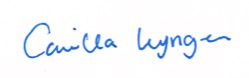 Camilla Lyngen